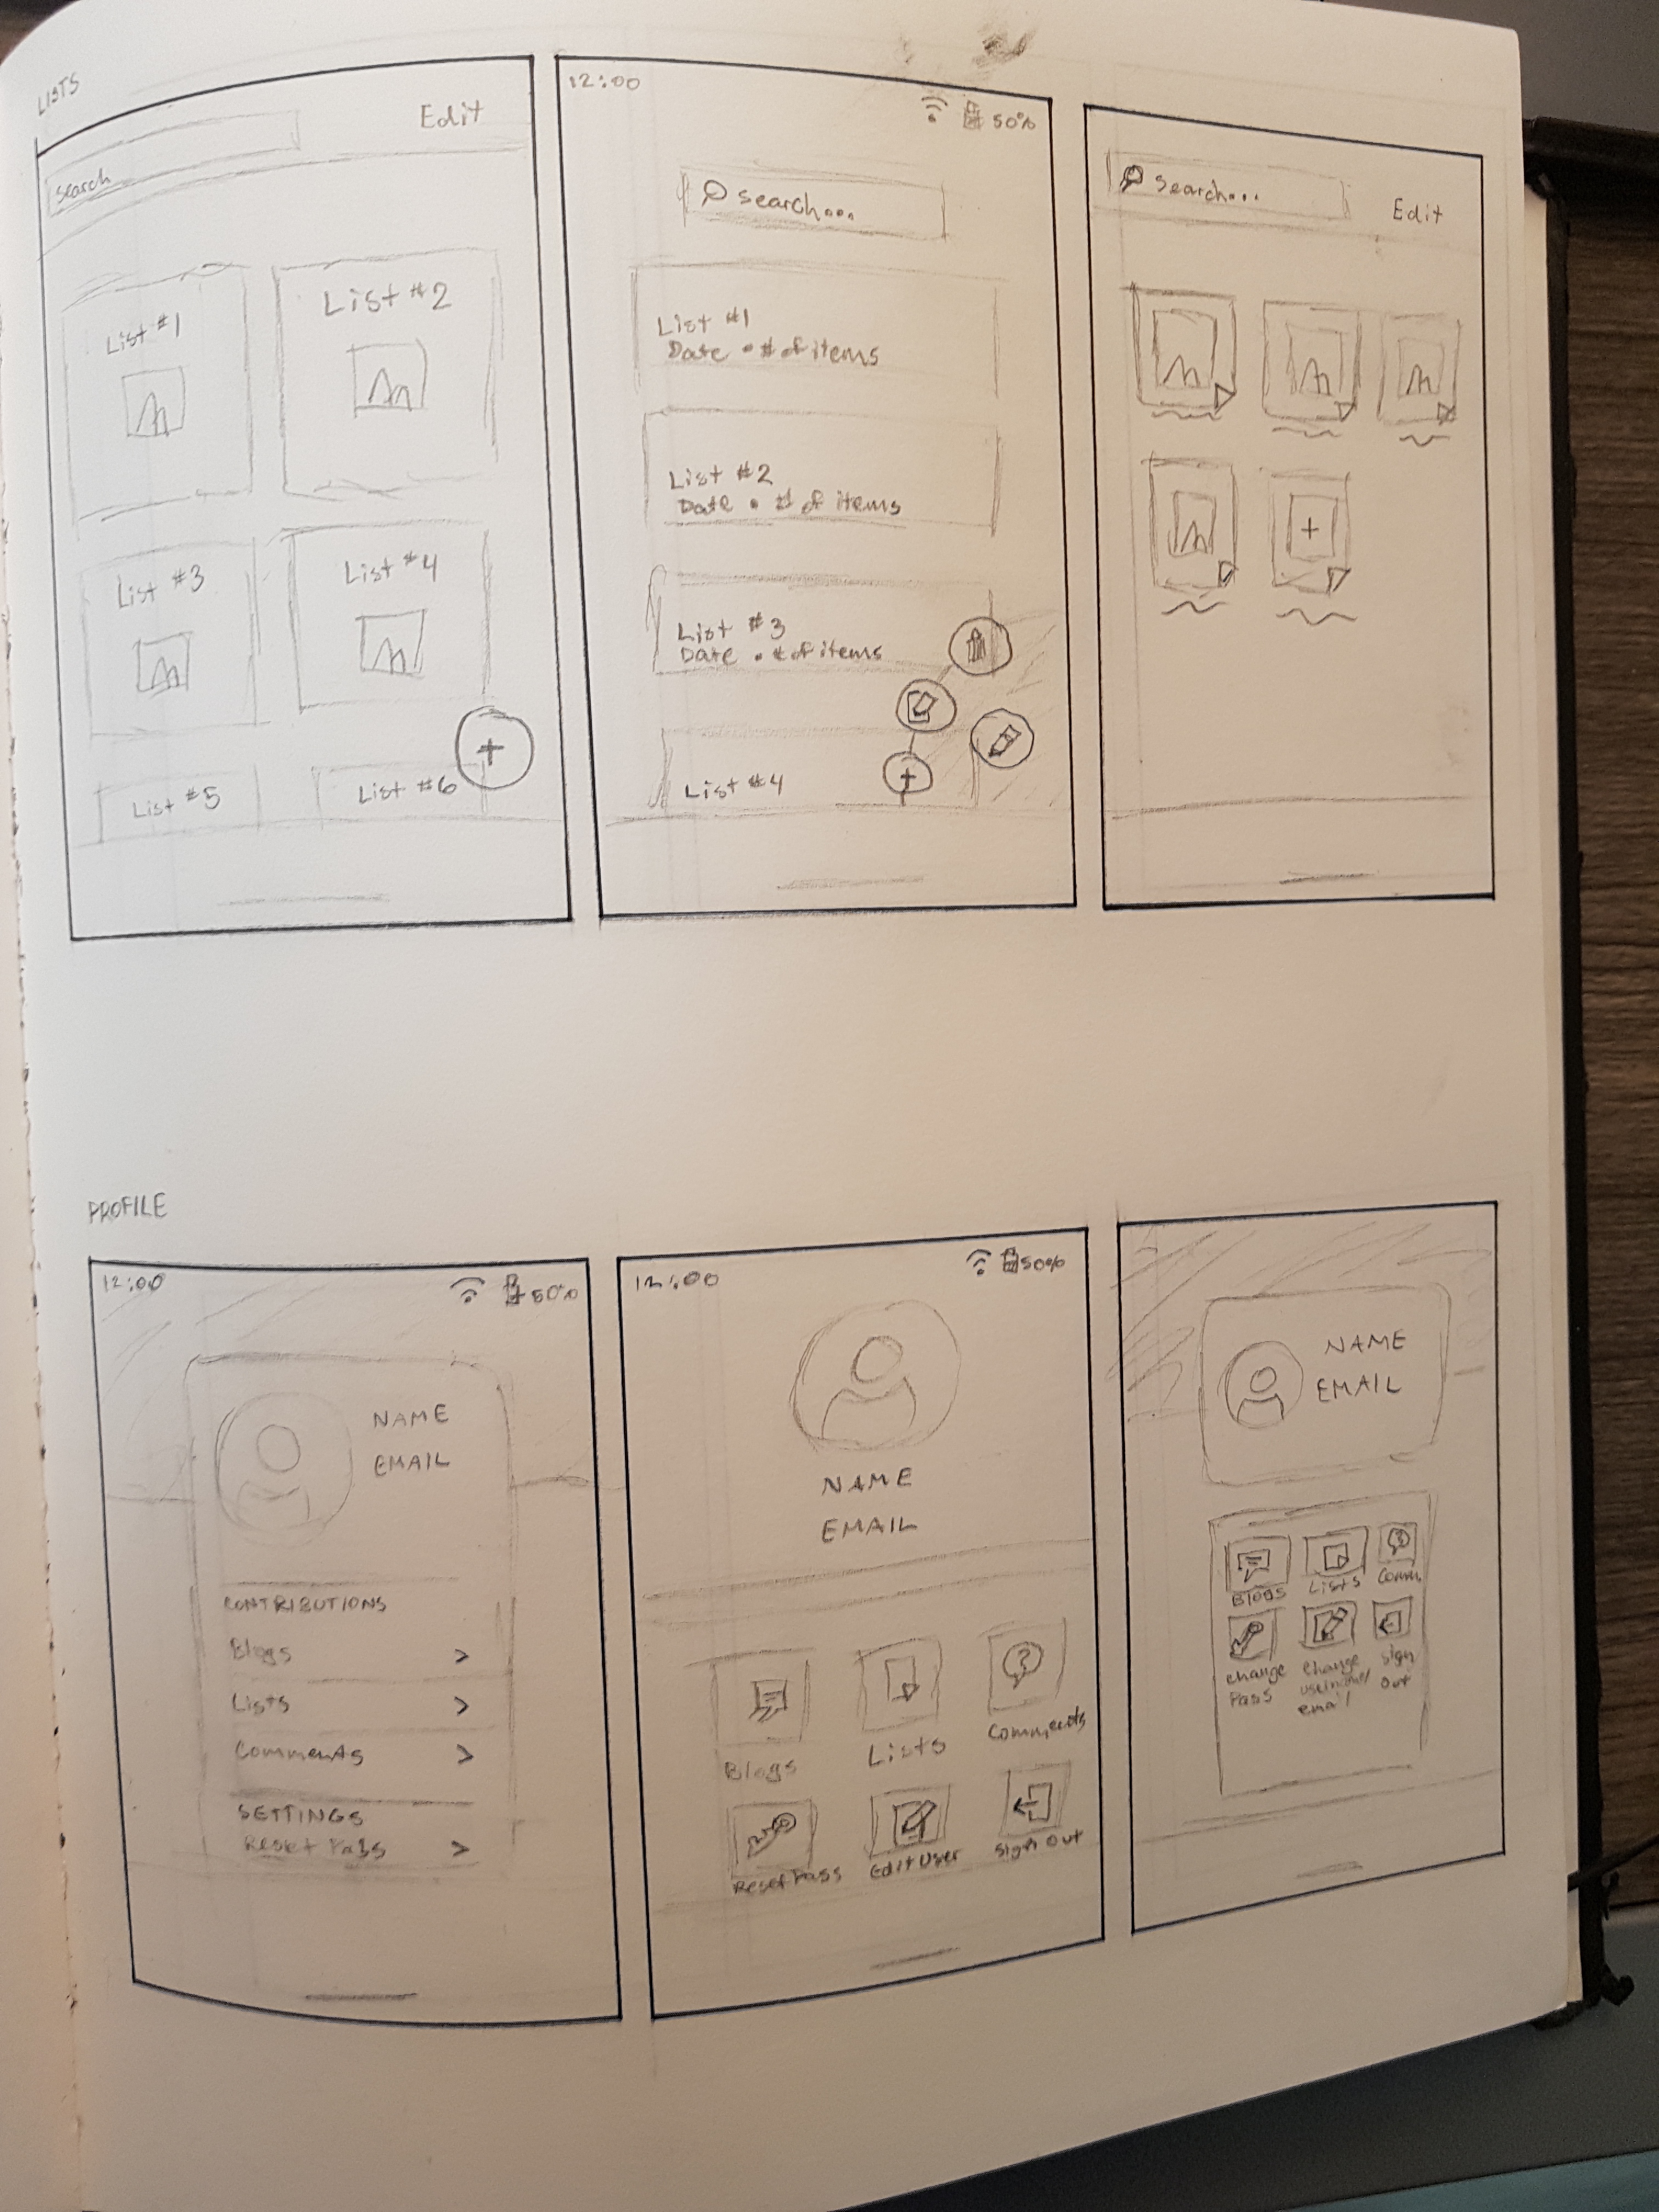 LISTS
search
Edit
List #1
List #2
List #3
List #4
List #5
List #6
12:00
50%
search...
List #1
Date • # of items
List #2
Date • # of items
List #3
Date • # of items
List #4
Search...
Edit
PROFILE
12:00
50%
NAME
EMAIL
CONTRIBUTIONS
Blogs
Lists
Comments
SETTINGS
Reset Pass
12:00
50%
NAME
EMAIL
Blogs
Lists
Comments
Reset Pass
Edit User
Sign Out
NAME
EMAIL
Blogs
Lists
Comm.
change
Pass
change
email
Sign
Out